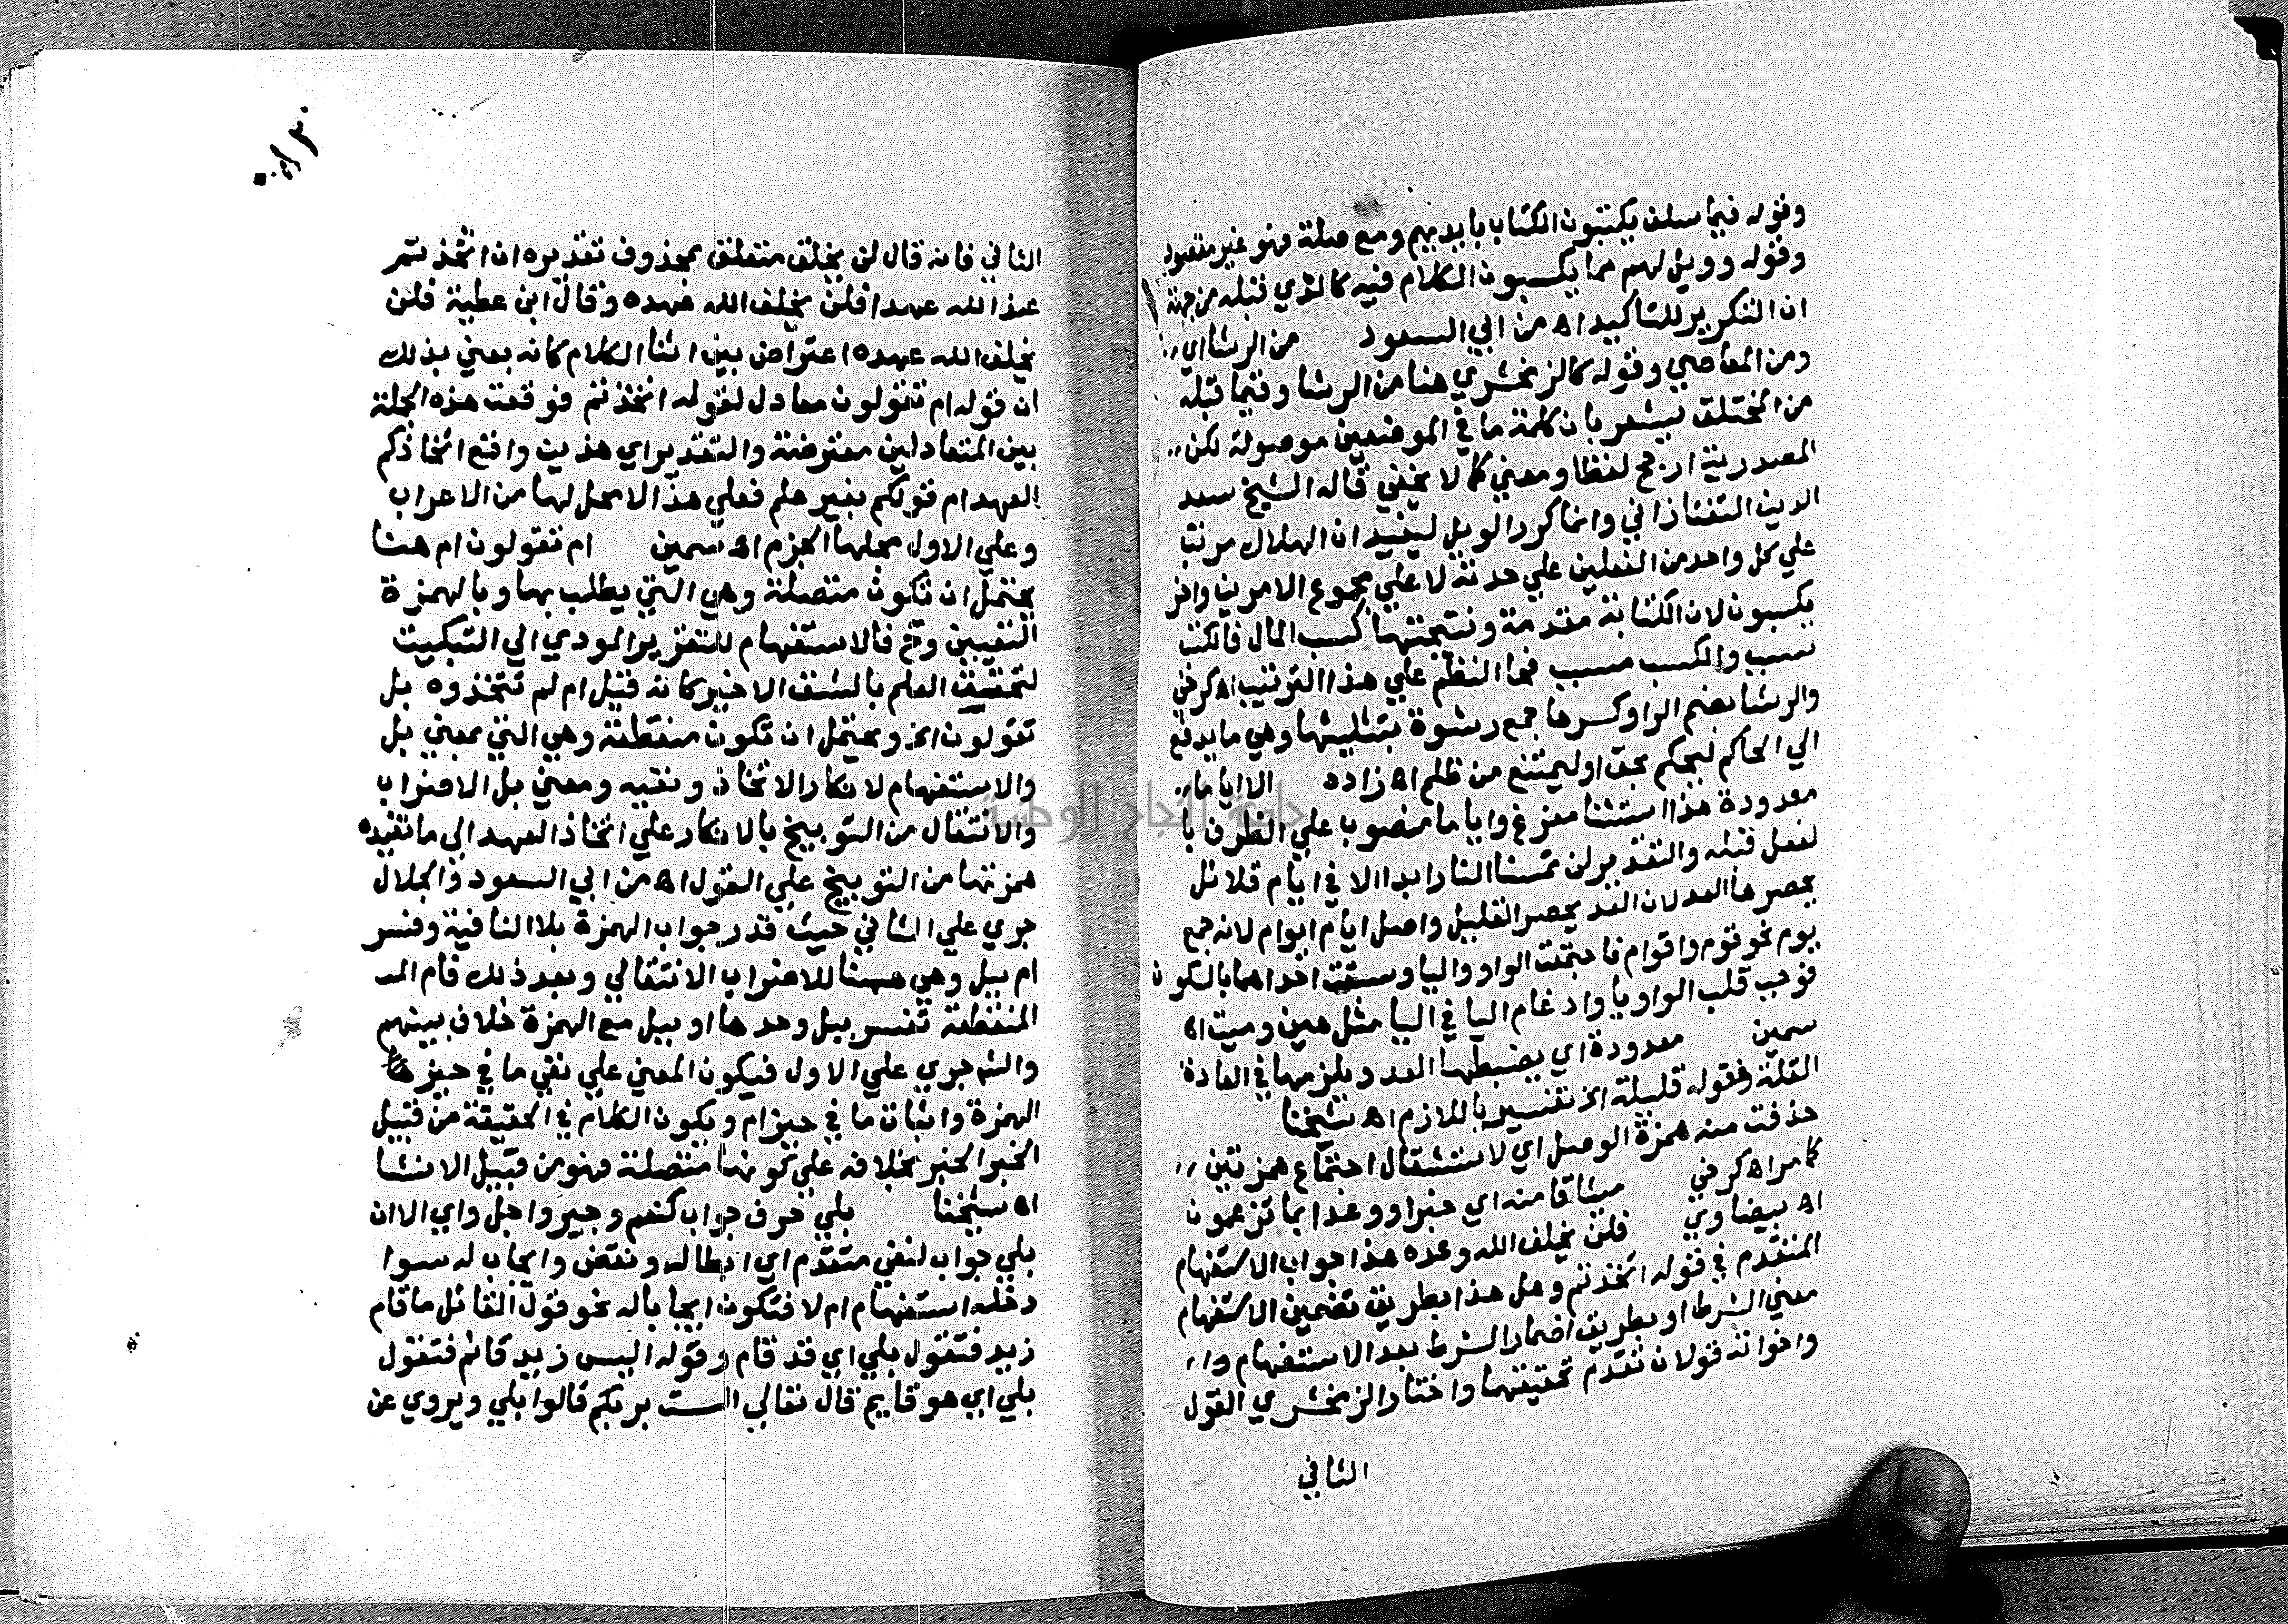 وقوله فيما سلف يكتبون الكتاب بايديهم ومع صلة فهو غير مقصود
وقوله وويل لهم مما يكسبون الكلام فيه كالذي قبله من جهة
ان التكرير للتاكيد اه من ابي السعود من الرشا اي
ومن المعاصي وقوله كالزمخشري هنا من الرشا وفيما قبله
من المختلق يشعر بان كلمة ما في الموضعين موصولة لكن
المصدرية ارجح لفظا ومعني كما لا يخفي قاله الشيخ سعد
الدين التفتازاني وانما كرر الويل ليفيد ان الهلاك مرتب
علي كل واحد من الفعلين علي حدته لا علي مجموع الامرين واخر
يكسبون لان الكتابة مقدمة ونتيجتها كسب المال فالكتب
سبب والكسب مسبب فجا النظم علي هذا الترتيب اه كرخي
والرشا بضم الرا وكسرها جمع رشوة بتثليثها وهي ما يدفع
الي الحاكم ليحكم بحق او ليمتنع من ظلم اه زاده الا اياما
معدودة هذا استثنا مفرغ واياما منصوب علي الظرف با
لفعل قبله والتقدير لن تمسنا النار ابدا الا في ايام قلائل
يحصرها العد لان العد يحصر القليل واصل ايام ايوام لانه جمع
يوم نحو قوم واقوام فاجتمعت الواو واليا وسبقت احداهما بالسكون
فوجب قلب الواو يا وادغام اليا في اليا مثل هين وميت اه
سمين معدودة اي يضبطها العد ويلزمها في العادة
القلة فقوله قليلة الخ تفسير باللازم اه شيخنا
حذفت منه همزة الوصل اي لاستثقال اجتماع همزتين
كما مر اه كرخي ميثاقا منه اي خبرا ووعدا بما تزعمون
اه بيضاوي فلن يخلف الله وعده هذا جواب الاستفهام
المتقدم في قوله اتخذتم وهل هذا بطريق تضمين الاستفهام
معني الشرط او بطريق اضمار الشرط بعد الاستفهام وا
واخواته قولان تقدم تحقيقها واختار الزمخشري القول
الثاني
الثاني فانه قال لن يخلف متعلق بمحذوف تقديره ان اتخذتم
عند الله عهدا فلن يخلف الله عهده وقال ابن عطية فلن
يخلف الله عهده اعتراض بين اثنا الكلام كانه يعني بذلك
ان قوله ام تقولون معادل لقوله اتخذتم فوقعت هذه الجملة
بين المتعادلين معترضة والتقدير اي هذين واقع اتخاذكم
العهد ام قولكم بغير علم فعلي هذا لا محل لها من الاعراب
وعلي الاول محلها الجزم اه سمين ام تقولون ام هنا
يحتمل ان تكون متصلة وهي التي يطلب بها وبالهمزة
التعيين وح فالاستفهام للتقرير المودي الي التبكيت
لتحقيق العلم بالشق الاخير كانه قيل ام لم تتخذوه بل
تقولون الخ ويحتمل ان تكون منقطعة وهي التي بمعني بل
والاستفهام لانكار الاتخاذ ونفيه ومعني بل الاضراب
والانتقال من التوبيخ بالانكار علي اتخاذ العهد الي ما تفيده
همزتها من التوبيخ علي القول اه من ابي السعود والجلال
جري علي الثاني حيث قدر جواب الهمزة بلا النافية وفسر
ام ببل وهي هنا للاضراب الانتقالي وبعد ذلك فام الـ
المنقطعة تفسر ببل وحدها او ببل مع الهمزة خلاف بينهم
والشم جري علي الاول فيكون المعني علي نفي ما في حيز هـا
الهمزة واثبات ما في حيز ام ويكون الكلام في الحقيقة من قبيل
الخبر الخبر بخلافه علي كونها متصلة فهو من قبيل الانشا
اه شيخنا بلي حرف جواب كنعم وجير واجل واي الا ان
بلي جواب لنفي متقدم اي ابطاله ونقض وايجاب له سوا
دخله استفهام ام لا فتكون ايجابا له نحو قول القائل ما قام
زيد فتقول بلي اي قد قام وقوله اليس زيد قائم فتقول
بلي اي هو قايم قال تعالي الست بربكم قالوا بلي ويروي عن
جامعة النجاح الوطنية